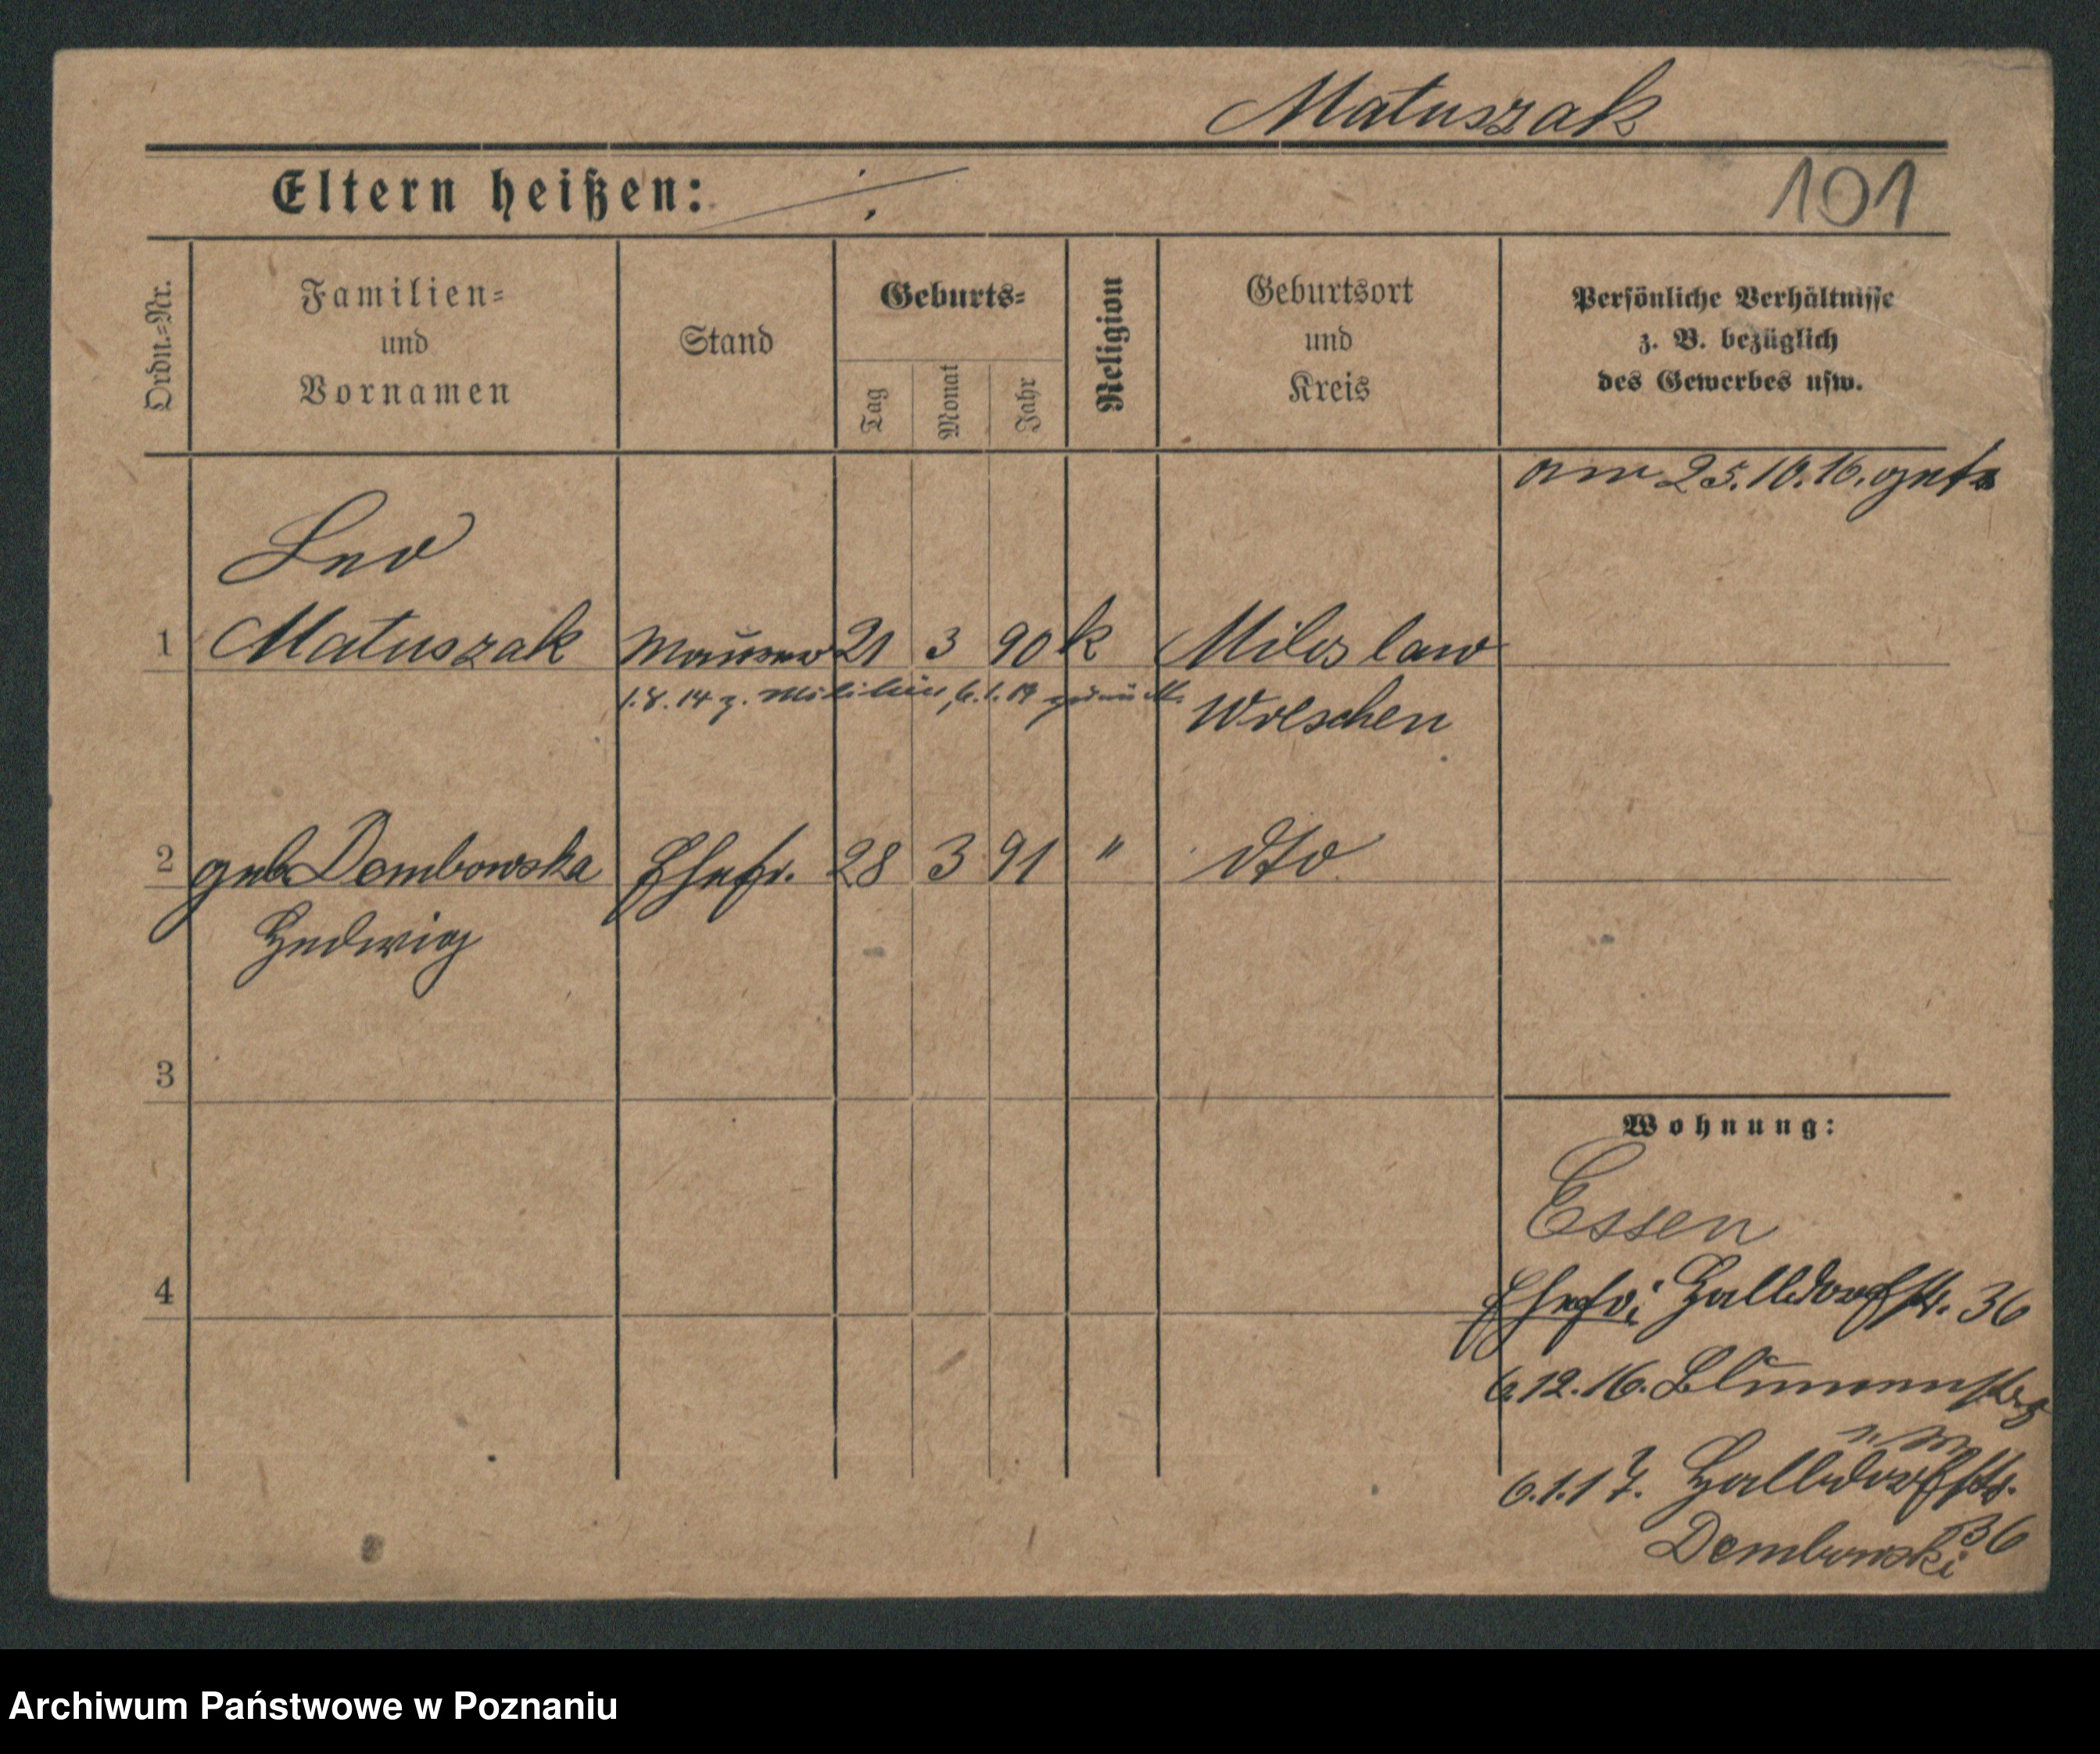 Matuszak
Eltern heißen: ./.
101
Ordn.=Nr.
Familien=
und
Vornamen
Stand
Geburts=
Tag
Monat
Jahr
Religion
Geburtsort
und
Kreis
Persönliche Verhältnisse
z. B. bezüglich
des Gewerbes usw.
am 25.10.16. getr
Leo
1 Matuszak Maurer 21 3 90 k Miloslaw
1.8.14 z. Militär, 6.1.19 zurück.
Wreschen
2 geb Dombowska Ehefr. 28 3 91 " dto
Hedwig
3
Wohnung:
Essen
4
Ehefr: Halbdorfstr. 36
6.12.16. Blumenstr
6.1.17. Halbdorfstr.
36
Dembowski
Archiwum Państwowe w Poznaniu